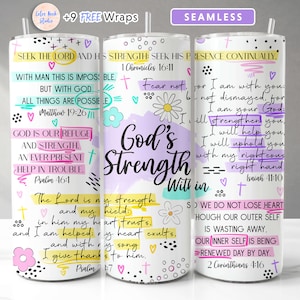 Lulu And Nicole
+9 FREE Wraps
SEAMLESS
SEEK THE LORD AND HIS STRENGTH; SEEK HIS PRESENCE CONTINUALLY.
1 Chronicles 16:11
WITH MAN THIS IS IMPOSSIBLE
BUT WITH GOD
ALL THINGS ARE POSSIBLE
Matthew 19:26
GOD IS OUR REFUGE
AND STRENGTH,
AN EVER PRESENT
HELP IN TROUBLE
Psalm 46:1
The Lord is my strength
and my shield
in him my heart trusts
and I am helped my heart exults
and with my song
I give thanks to him
Psalm
Fear not
God's
Strength
Within
for I am with you
not dismayed for
am your God
strengthen
I will help you
I will uphold you
with my right
hand
Isaiah 41:10
SO WE DO NOT LOSE HEART
THOUGH OUR OUTER SELF
IS WASTING AWAY,
OUR INNER SELF IS BEING
RENEWED DAY BY DAY
2 Corinthians 4:16